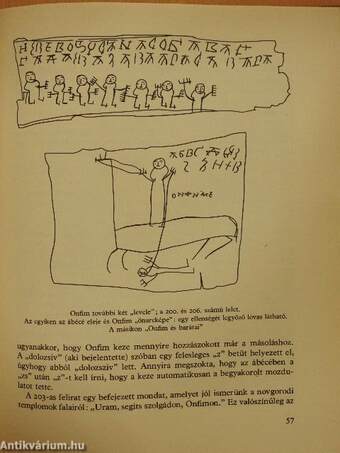 Onfim további két „levele”; a 200. és 206. számú lelet.
Az egyiken az ábécé eleje és Onfim „önarcképe”: egy ellenségét legyőző lovas látható.
A másikon „Onfim és barátai”
ugyanakkor, hogy Onfim keze mennyire hozzászokott már a másoláshoz.
A „dolozsiv” (aki bejelentette) szóban egy felesleges „z” betűt helyezett el,
úgyhogy abból „dolozsziv” lett. Annyira megszokta, hogy az ábécében a
„zs” után „z”-t kell írni, hogy a keze automatikusan a begyakorolt mozdu-
latot tette.
A 203-as felirat egy befejezett mondat, amelyet jól ismerünk a novgorodi
templomok falairól: „Uram, segíts szolgádon, Onfimon.” Ez valószínűleg az
57
Antikvárium.hu